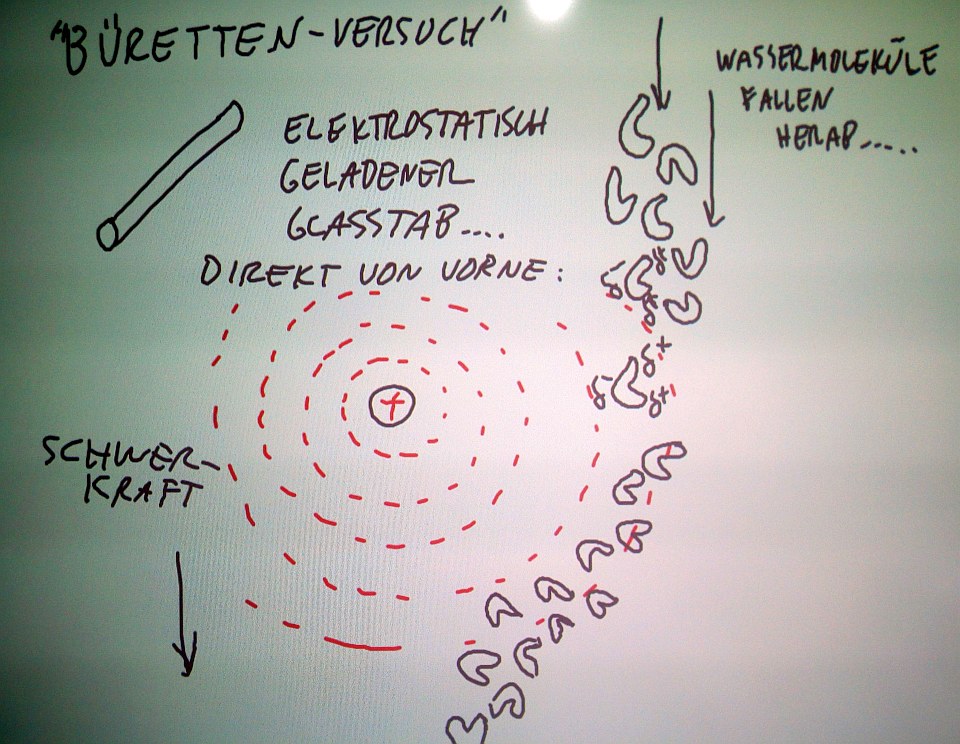 "BÜRETTEN-VERSUCH"
ELEKTROSTATISCH
GELADENER
GLASSTAB....
DIREKT VON VORNE:
WASSERMOLEKÜLE
FALLEN
HERAB.....
δ- δ+
δ+
δ+
δ- δ+
+
SCHWER-
KRAFT